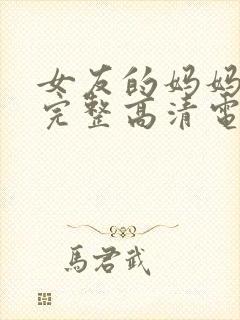 女友的妈妈
完整高清電
馬君武